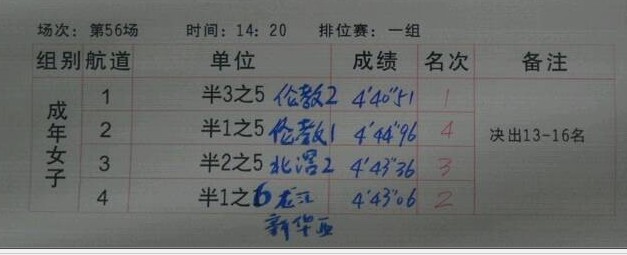 场次：第56场 时间：14：20 排位赛：一组
组别 航道 单位 成绩 名次 备注
成年女子
1 半3之5 伦教2 4'40"51 1
2 半1之5 伦教1 4'44"96 4 决出13-16名
3 半2之5 北滘2 4'43"36 3
4 半1之6 龙江 4'43"06 2
新华西